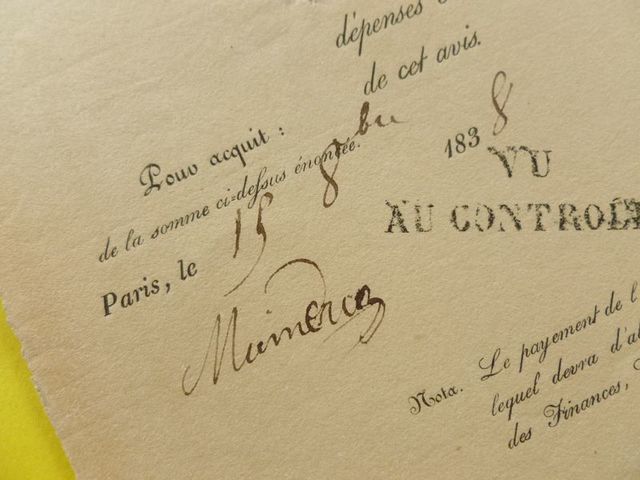 dépenses
de cet avis.
Pour acquit :
de la somme ci-dessus énoncée.
Paris, le 15 8bre 1838
VU
AU CONTROLE
Nota. Le payement de l'
lequel devra d'a
des Finances,